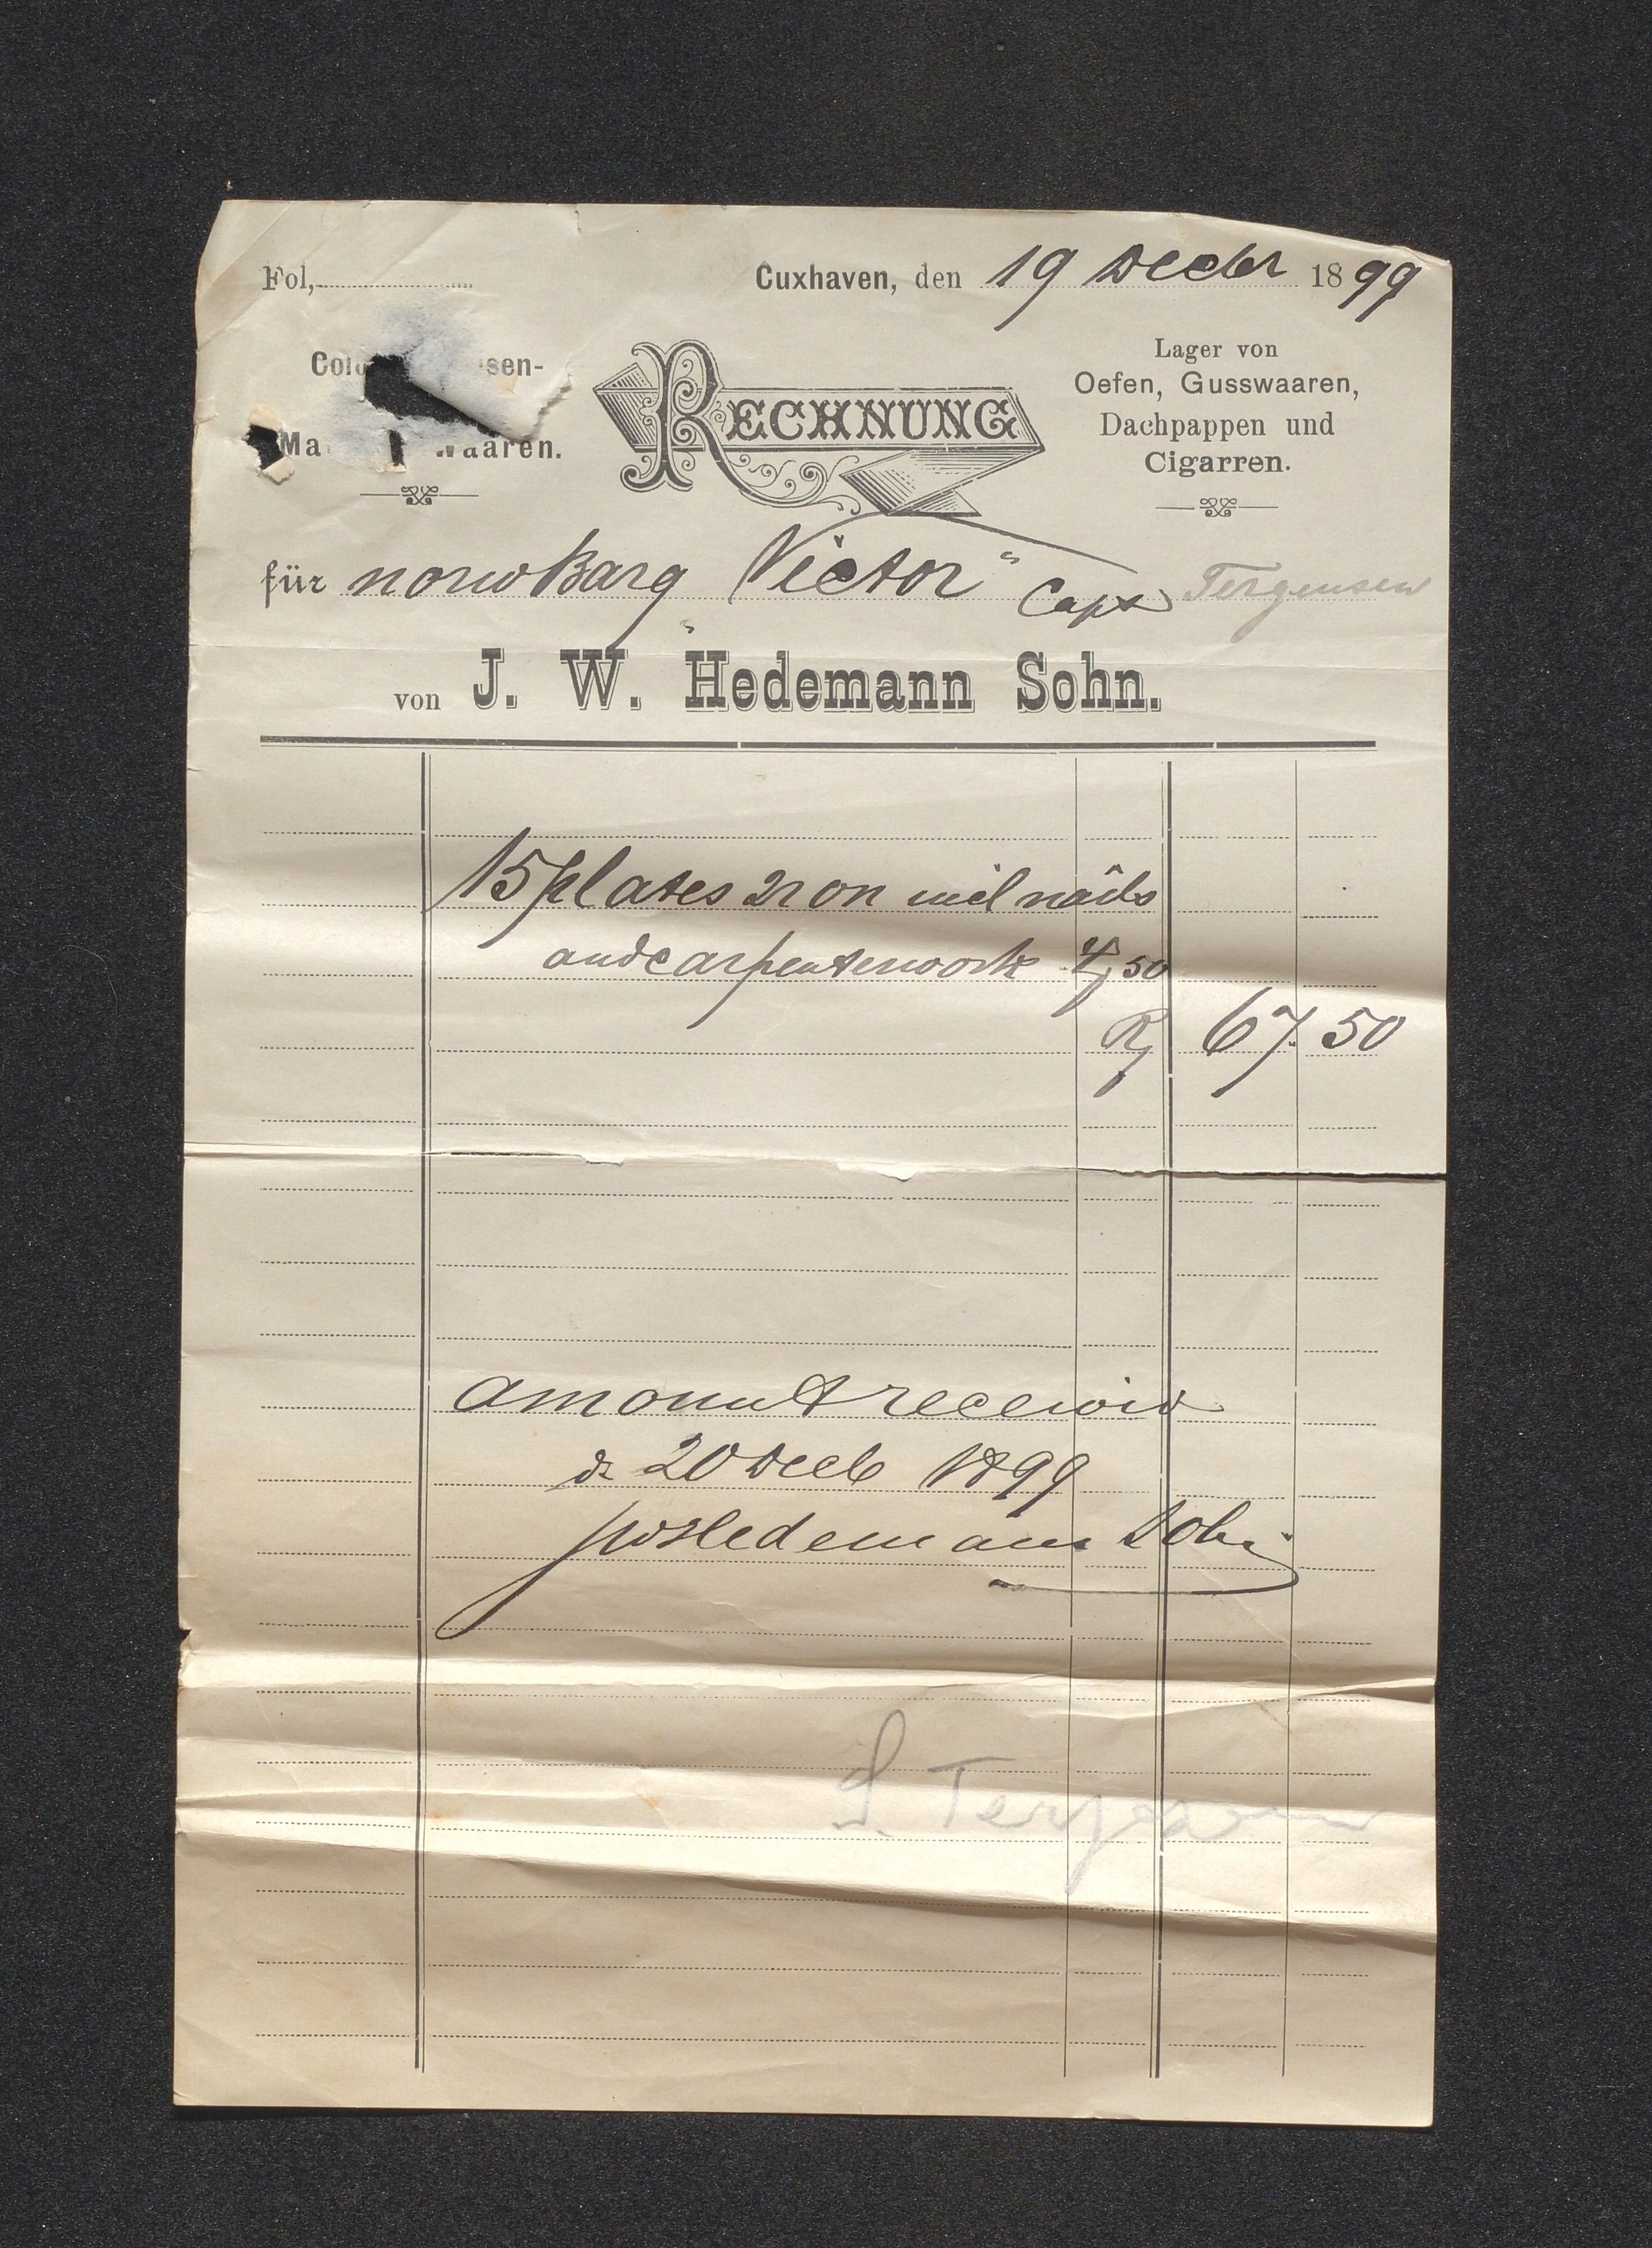 Fol,
Cuxhaven, den 19 Decbr 1899
sen-
waaren.
RECHNUNG
Lager von
Oefen, Gusswaaren,
Dachpappen und
Cigarren.
für norw Barg „Victor" Capt Terjensen
von J. W. Hedemann Sohn.
15 plates iron incl nails
and carpenterwork 4,50
67.50
amount received
d. 20 Decb 1899
JWHedemann Sohn
S. Terjesen